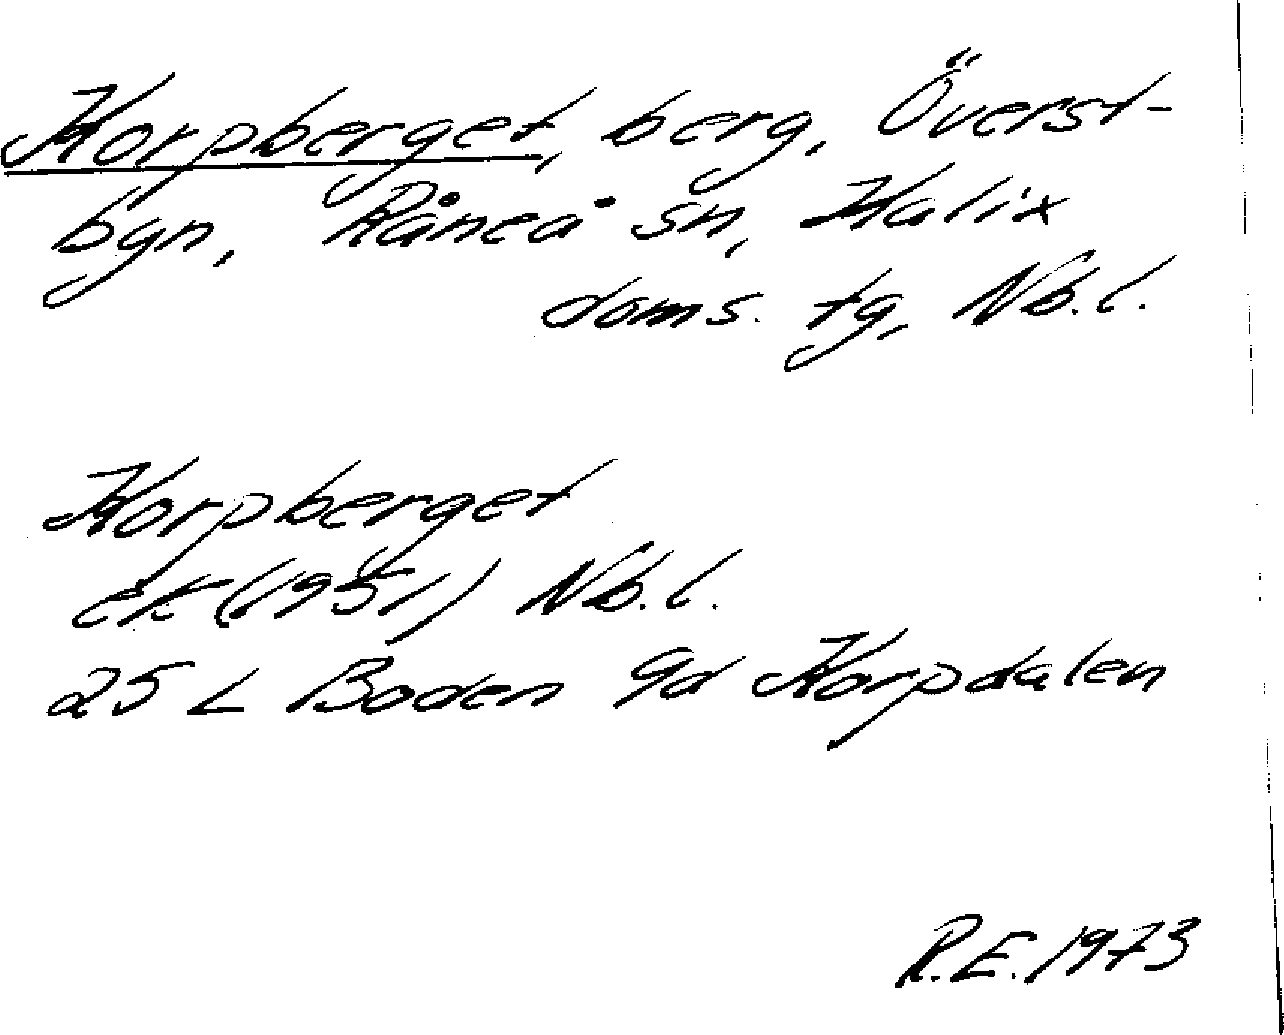 Korpberget, berg, Överst-
byn, Råneå sn, Kalix
doms. tg, Nb.l.
Korpberget
ek (1951) Nb.l.
25 L Boden 9d Korpdalen
R.E. 1973